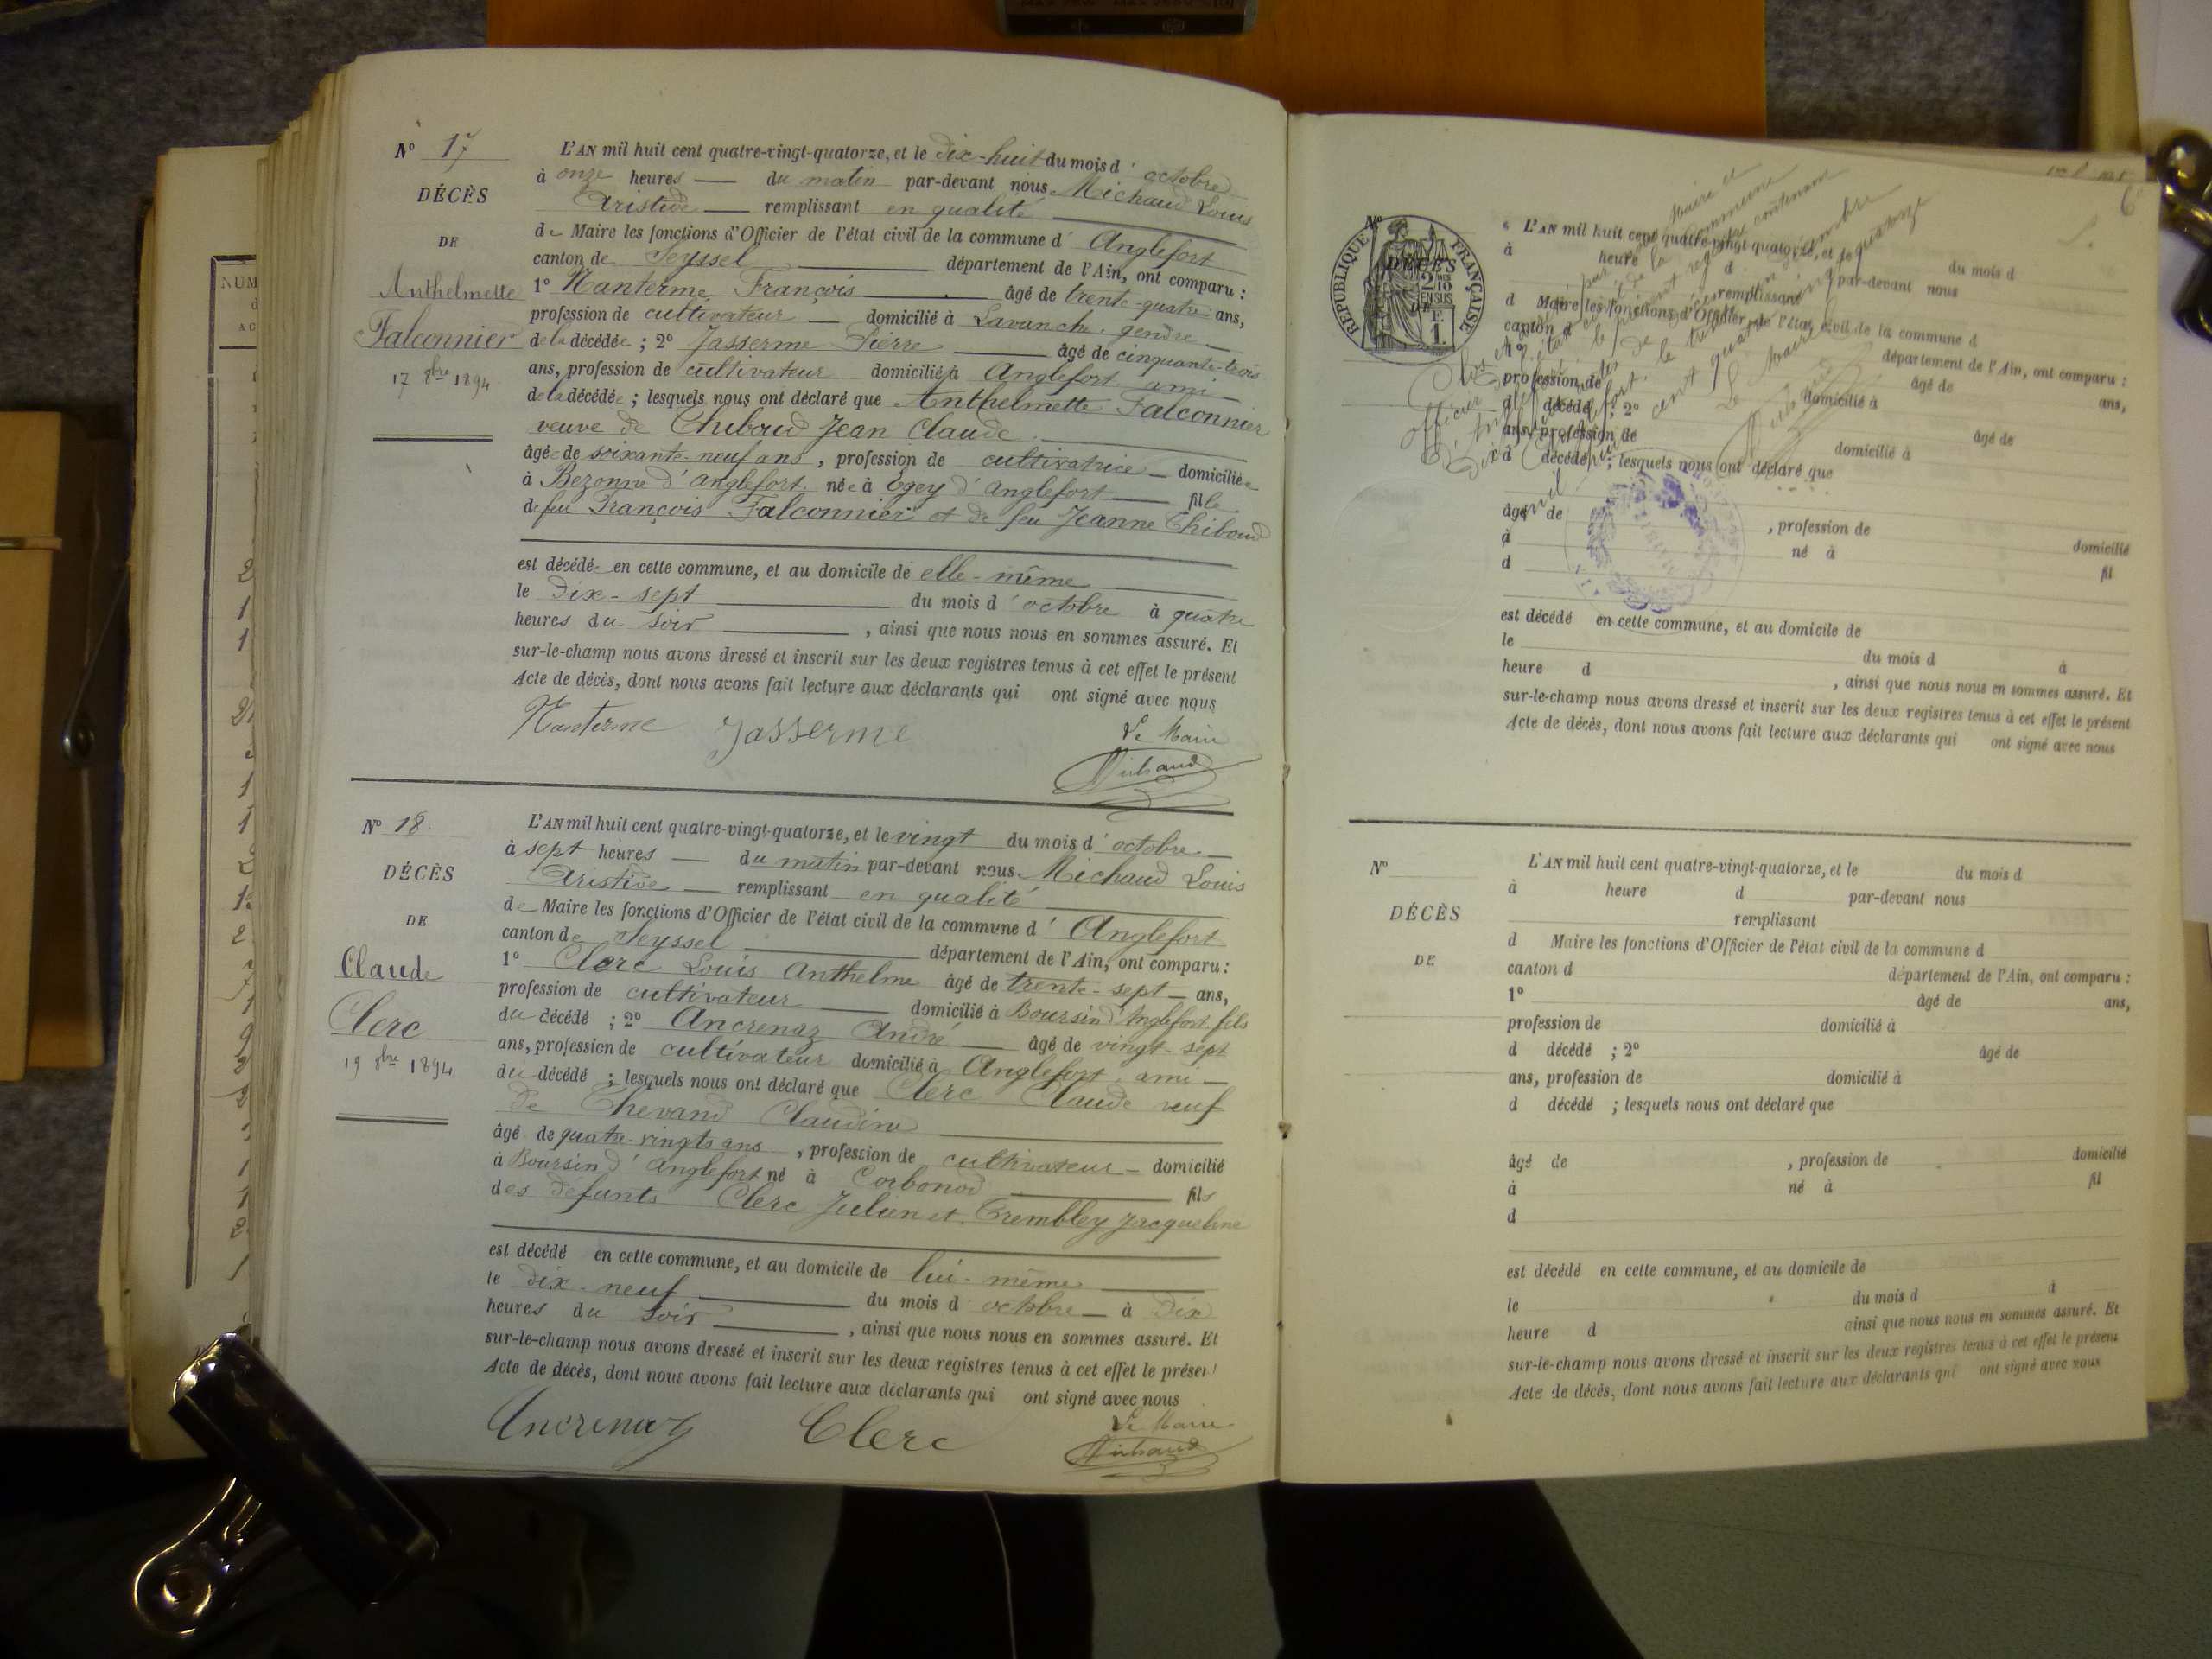 N° 17
DÉCÈS
DE
Anthelmette
Falconnier
17 8bre 1894
L'AN mil huit cent quatre-vingt-quatorze, et le dix-huit du mois d'octobre
à onze heures — du matin par-devant nous Michaud Louis
Aristide — remplissant en qualité
de Maire les fonctions d'Officier de l'état civil de la commune d'Anglefort
canton de Seyssel département de l'Ain, ont comparu :
1° Nanterme François âgé de trente-quatre ans,
profession de cultivateur — domicilié à Lavanche, gendre —
de la décédée ; 2° Jasserme Pierre âgé de cinquante-trois
ans, profession de cultivateur domicilié à Anglefort ami —
de la décédée ; lesquels nous ont déclaré que Anthelmette Falconnier
veuve de Thiboud Jean Claude
âgée de soixante-neuf ans, profession de cultivatrice — domiciliée
à Bezonne d'Anglefort née à Egey d'Anglefort — fille
de feu François Falconnier et de feu Jeanne Thiboud
est décédée en cette commune, et au domicile de elle-même
le dix-sept du mois d'octobre à quatre
heures du soir , ainsi que nous nous en sommes assuré. Et
sur-le-champ nous avons dressé et inscrit sur les deux registres tenus à cet effet le présent
Acte de décès, dont nous avons fait lecture aux déclarants qui ont signé avec nous
Nanterme Jasserme Le Maire
Michaud
N° 18
DÉCÈS
DE
Claude
Clerc
19 8bre 1894
L'AN mil huit cent quatre-vingt-quatorze, et le vingt du mois d'octobre —
à sept heures — du matin par-devant nous Michaud Louis
Aristide — remplissant en qualité
de Maire les fonctions d'Officier de l'état civil de la commune d'Anglefort
canton de Seyssel département de l'Ain, ont comparu :
1° Clerc Louis Anthelme âgé de trente-sept — ans,
profession de cultivateur domicilié à Boursin d'Anglefort fils
du décédé ; 2° Ancrenaz André — âgé de vingt-sept
ans, profession de cultivateur domicilié à Anglefort, ami —
du décédé ; lesquels nous ont déclaré que Clerc Claude veuf
de Thevand Claudine
âgé de quatre-vingts ans , profession de cultivateur — domicilié
à Boursin d'Anglefort né à Corbonod fils
des défunts Clerc Julien et Trembley Jacqueline
est décédé en cette commune, et au domicile de lui-même
le dix-neuf du mois d'octobre — à dix
heures du soir , ainsi que nous nous en sommes assuré. Et
sur-le-champ nous avons dressé et inscrit sur les deux registres tenus à cet effet le présent
Acte de décès, dont nous avons fait lecture aux déclarants qui ont signé avec nous
Ancrenaz Clerc Le Maire
Michaud
NUM
N°
RÉPUBLIQUE FRANÇAISE
DÉCÈS
2/10 EN SUS
DE
1 F.
L'AN mil huit cent quatre-vingt-quatorze, et le du mois d
à heure d par-devant nous
remplissant
d Maire les fonctions d'Officier de l'état civil de la commune d
canton d département de l'Ain, ont comparu :
1° âgé de ans,
profession de domicilié à
d décédé ; 2° âgé de
ans, profession de domicilié à
d décédé ; lesquels nous ont déclaré que
âgé de , profession de domicilié
à né à fil
d
est décédé en cette commune, et au domicile de
le du mois d à
heure d , ainsi que nous nous en sommes assuré. Et
sur-le-champ nous avons dressé et inscrit sur les deux registres tenus à cet effet le présent
Acte de décès, dont nous avons fait lecture aux déclarants qui ont signé avec nous
N°
DÉCÈS
DE
L'AN mil huit cent quatre-vingt-quatorze, et le du mois d
à heure d par-devant nous
remplissant
d Maire les fonctions d'Officier de l'état civil de la commune d
canton d département de l'Ain, ont comparu :
1° âgé de ans,
profession de domicilié à
d décédé ; 2° âgé de
ans, profession de domicilié à
d décédé ; lesquels nous ont déclaré que
âgé de , profession de domicilié
à né à fil
d
est décédé en cette commune, et au domicile de
le du mois d à
heure d ainsi que nous nous en sommes assuré. Et
sur-le-champ nous avons dressé et inscrit sur les deux registres tenus à cet effet le présent
Acte de décès, dont nous avons fait lecture aux déclarants qui ont signé avec nous